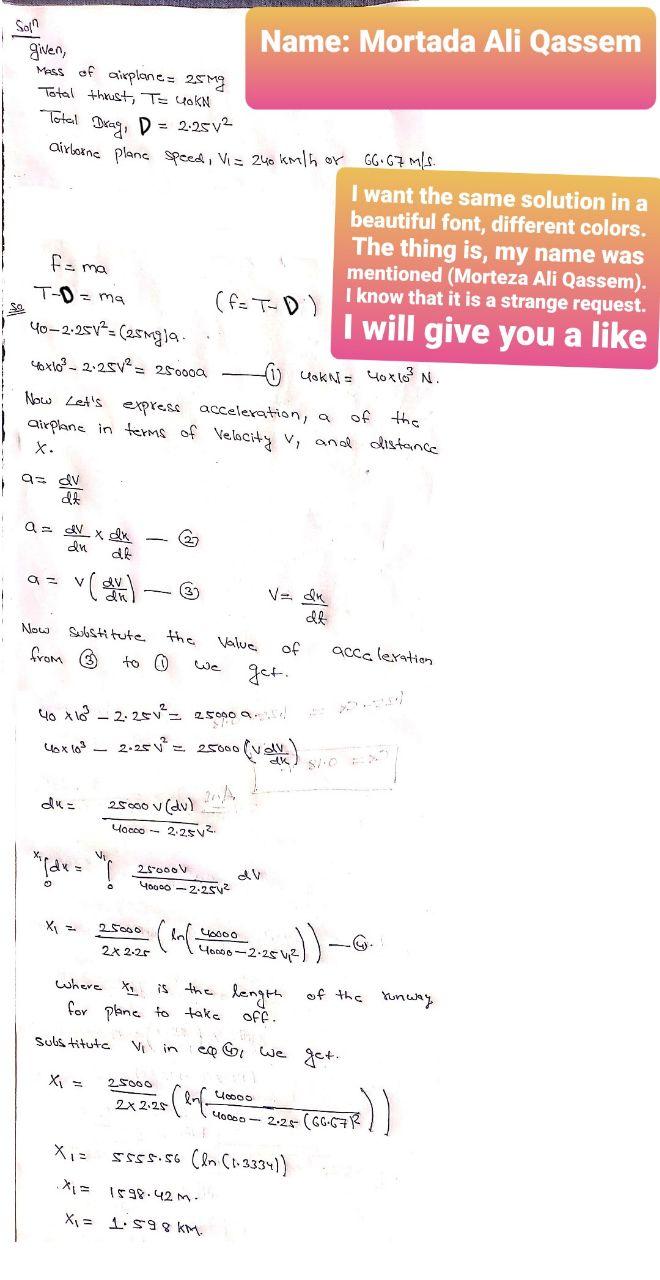 Name: Mortada Ali Qassem
Solⁿ
given,
Mass of airplane = 25Mg
Total thrust, T= 40KN
Total Drag, D = 2.25V²
airborne plane speed, V₁= 240 km/h or 66.67 M/S.
I want the same solution in a
beautiful font, different colors.
The thing is, my name was
mentioned (Morteza Ali Qassem).
I know that it is a strange request.
I will give you a like
f = ma
T-D = ma (f= T- D)
so
40-2.25V²=(25Mg)a.
40x10³- 2.25V²= 25000a —① 40KN= 40x10³ N.
Now Let's express acceleration, a of the
airplane in terms of Velocity V, and distance
X.
a= dv/dt
a= dv/dx x dx/dt — ②
a = v(dv/dx) — ③ V= dx/dt
Now Substitute the Value of acceleration
from ③ to ① we get.
40 x10³ – 2.25V²= 25000a.
40x10³ – 2.25V²= 25000(V dv/dx)
dx= 25000 V(dv)/40000 – 2.25V².
ˣ¹∫₀dx = ⱽ¹∫₀ 25000V/40000 – 2.25V² dV
X₁ = 25000/2x2.25 (ln(40000/40000–2.25V₁²)) —④.
where X₁ is the length of the runway
for plane to take off.
Substitute V₁ in eq④, we get.
X₁ = 25000/2x2.25 (ln(40000/40000– 2.25(66.67)²))
X₁= 5555.56 (ln(1.3334))
X₁= 1598.42m.
X₁= 1.598 KM.